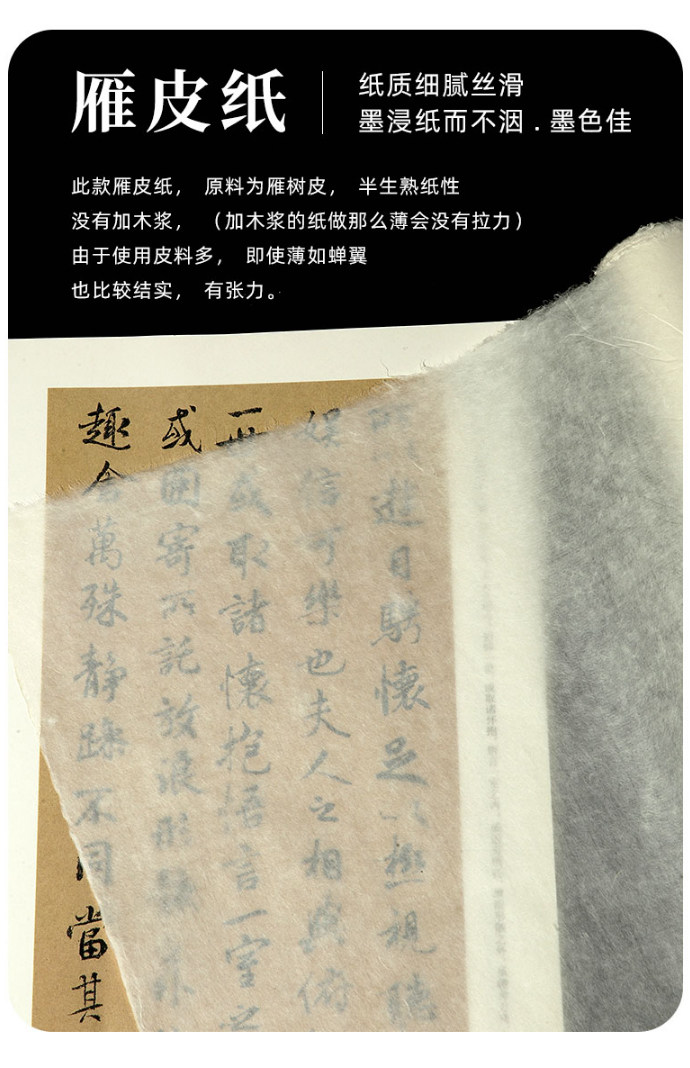 雁皮纸
纸质细腻丝滑
墨浸纸而不洇.墨色佳
此款雁皮纸， 原料为雁树皮， 半生熟纸性
没有加木浆， （加木浆的纸做那么薄会没有拉力）
由于使用皮料多， 即使薄如蝉翼
也比较结实， 有张力。
所以遊目騁懷足以極視聽
娛信可樂也夫人之相與俯
一世或取諸懷抱悟言一室之
或因寄所託放浪形骸之外
趣舍萬殊靜躁不同當其